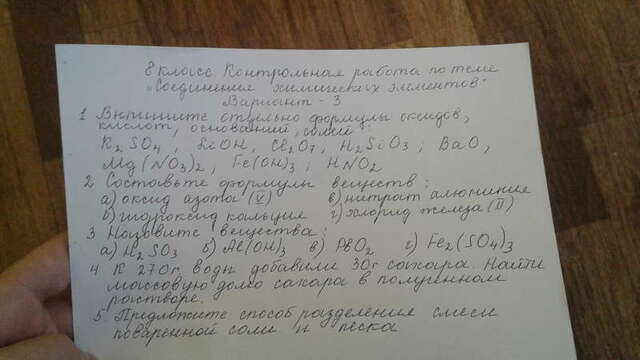 8 класс Контрольная работа по теме
"Соединения химических элементов"
Вариант - 3
1 Выпишите отдельно формулы оксидов,
кислот, оснований, солей:
K2SO4, LiOH, Cl2O7, H2SiO3; BaO,
Mg(NO3)2, Fe(OH)3; HNO2
2 Составьте формулы веществ:
а) оксид азота (V) в) нитрат алюминия
б) гидроксид кальция г) хлорид железа (III)
3 Назовите вещества:
а) H2SO3 б) Al(OH)3 в) PbO2 г) Fe2(SO4)3
4 К 270г воды добавили 30г сахара Найти
массовую долю сахара в полученном
растворе.
5 Предложите способ разделения смеси
поваренной соли и песка